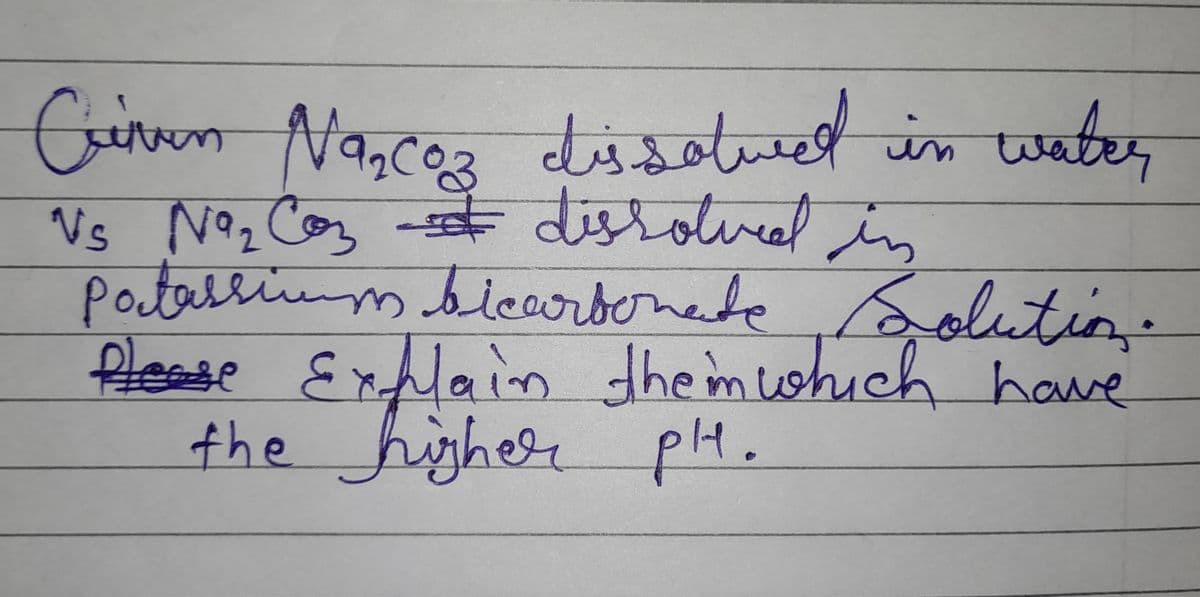 Given Na₂CO₃ dissolved in water
Vs Na₂CO₃ dissolved in
Potassium bicarbonate Solution.
Please Explain them which have
the higher pH.